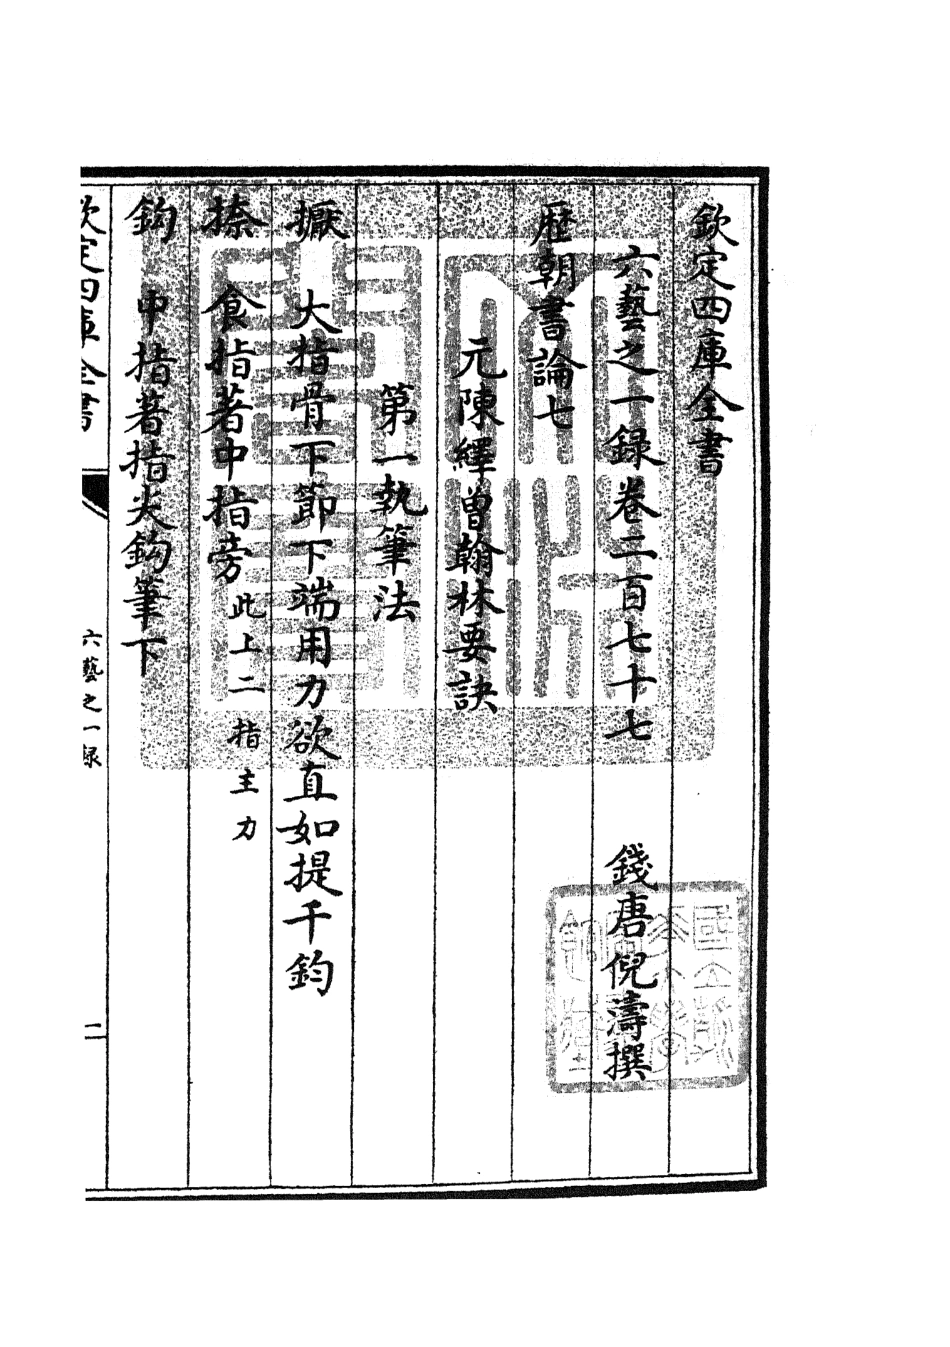 欽定四庫全書
六藝之一錄卷二百七十七
錢唐倪濤撰
歷朝書論七
元陳繹曾翰林要訣
第一執筆法
擫 大指骨下節下端用力欲直如提千鈞
捺 食指著中指旁此上二指主力
鈎 中指著指尖鈎筆下
欽定四庫全書
六藝之一録
二